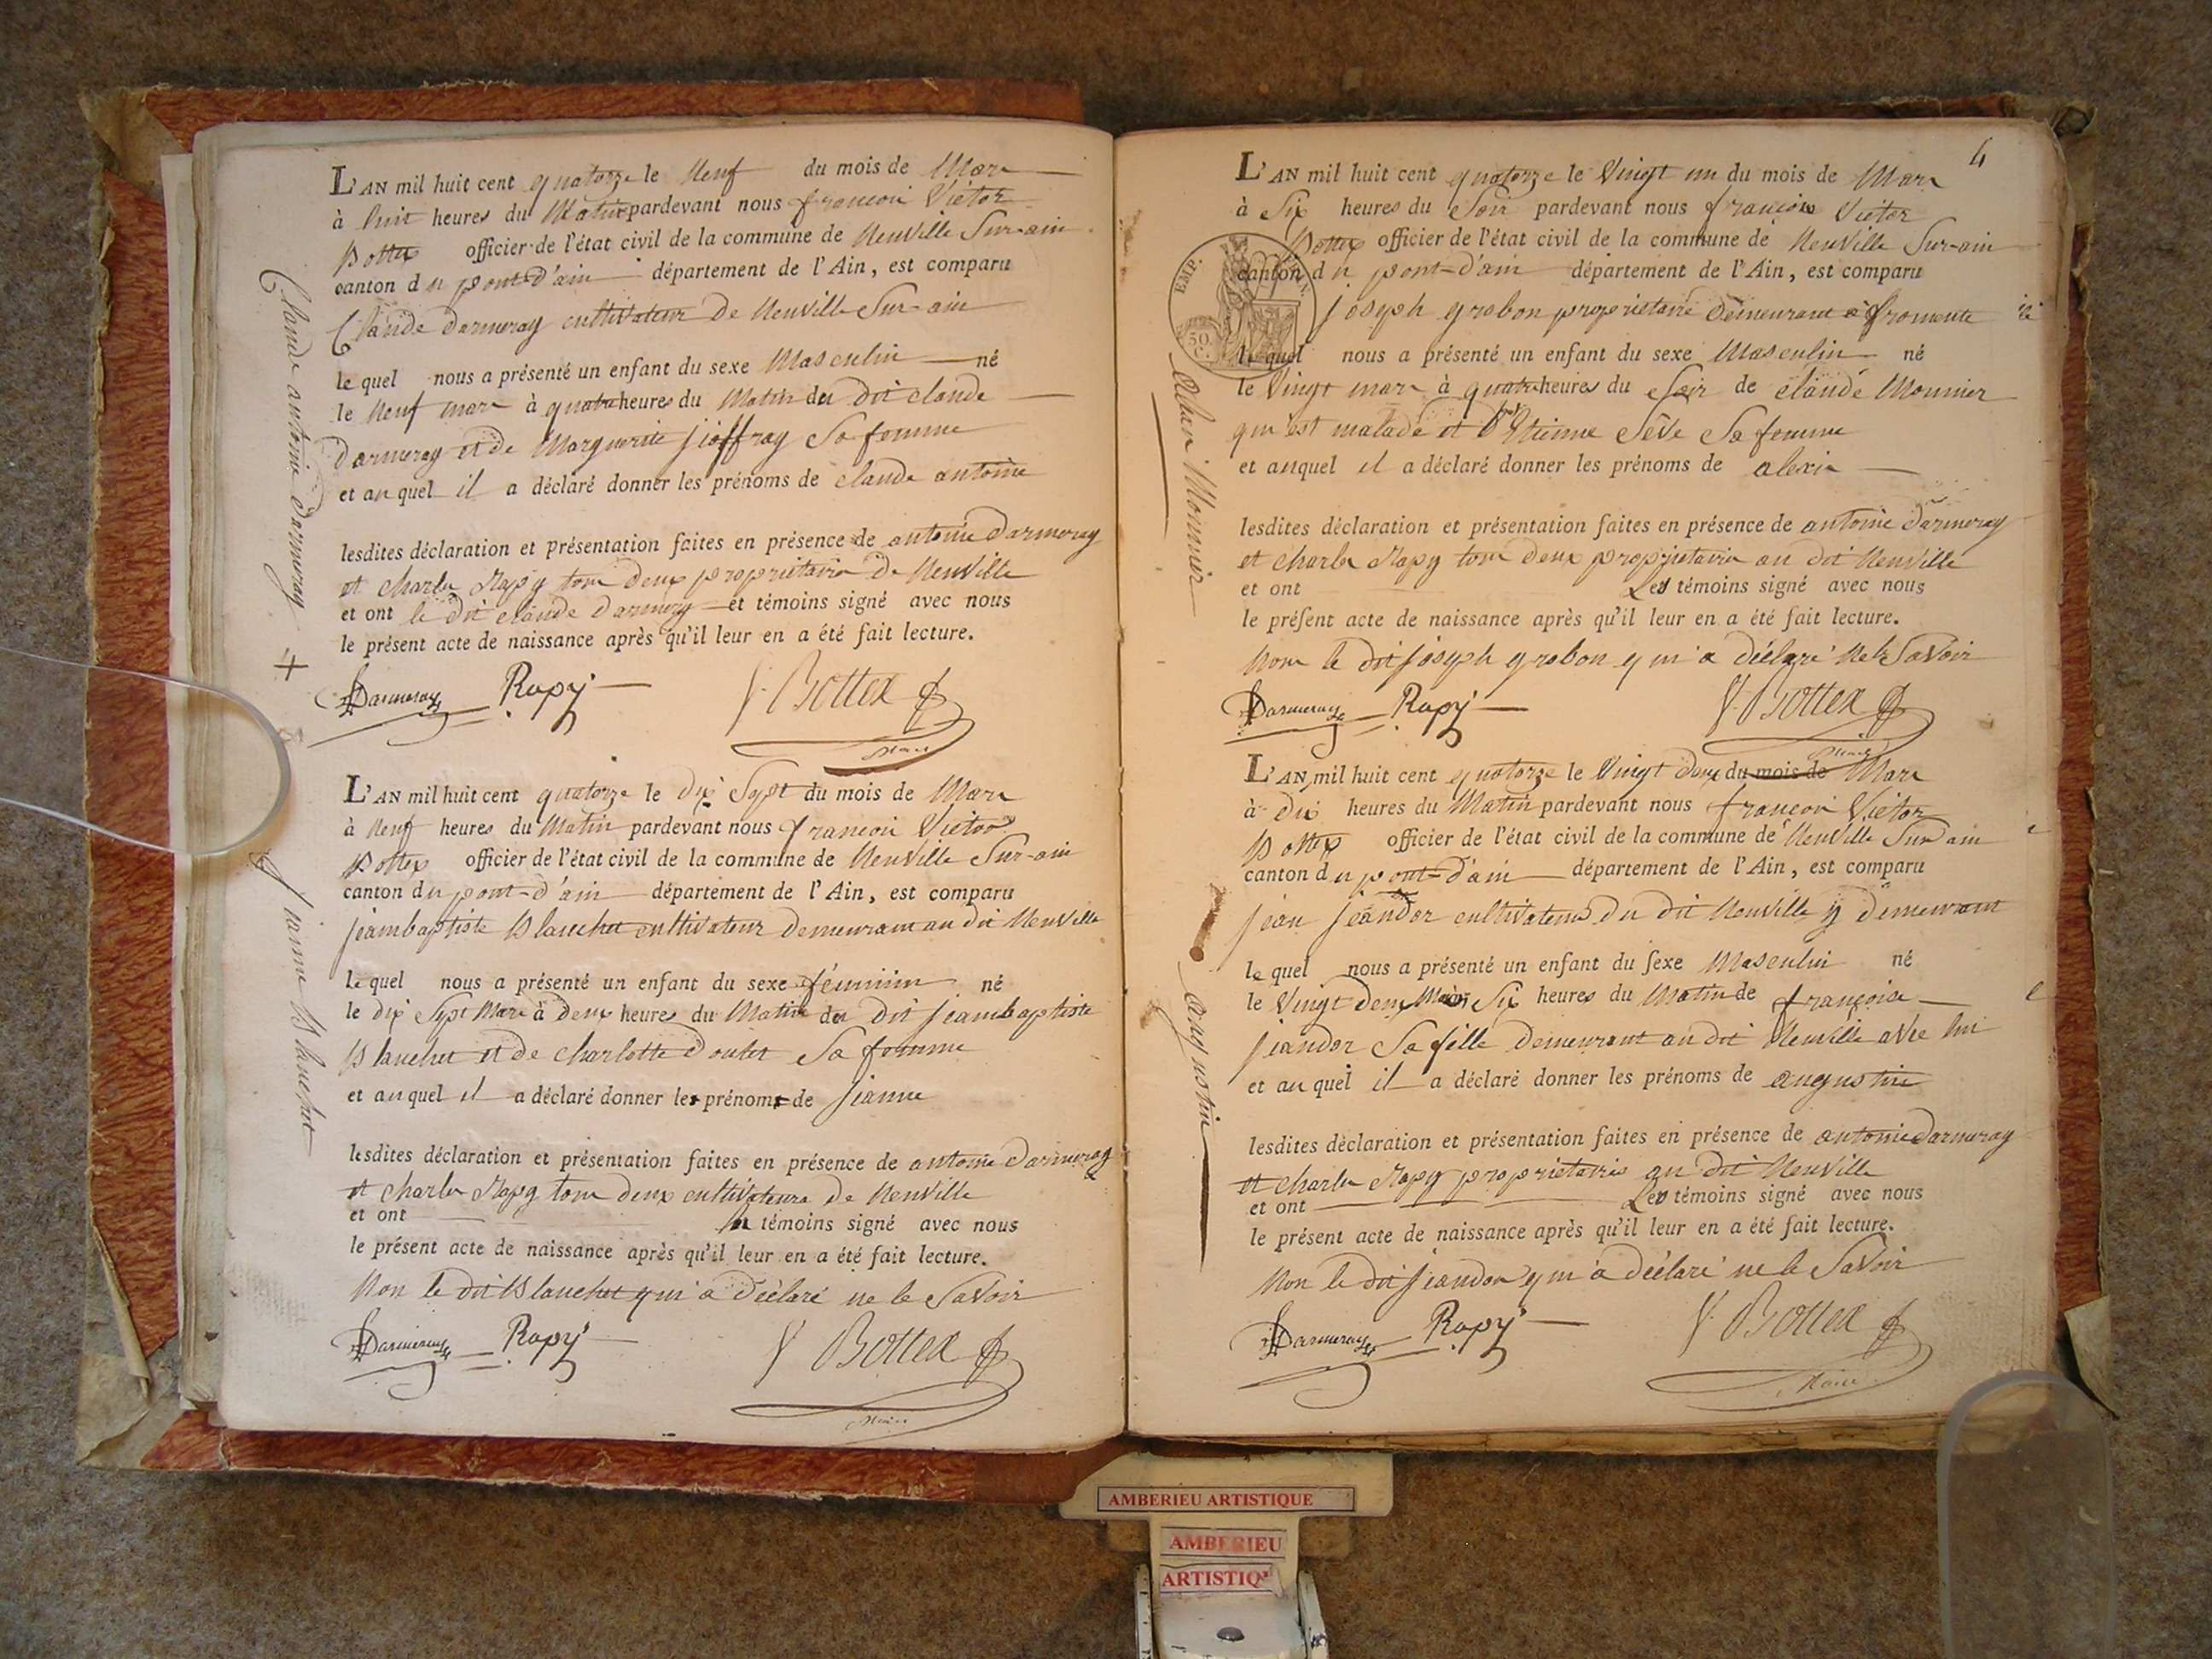 L'AN mil huit cent quatorze le Neuf du mois de Mars
à huit heures du Matin pardevant nous françois Victor
Bottex officier de l'état civil de la commune de Neuville Sur-ain
canton du pont-d'ain département de l'Ain, est comparu
Claude Darmeray cultivateur de Neuville Sur-ain
lequel nous a présenté un enfant du sexe Masculin né
le Neuf mars à quatre heures du Matin du dit claude
Darmeray et de Marguerite Sa femme
et auquel il a déclaré donner les prénoms de claude antoine
lesdites déclaration et présentation faites en présence de antoine Darmeray
et charles Rapy tous deux propriétaires de Neuville
et ont le dit claude Darmeray et témoins signé avec nous
le présent acte de naissance après qu'il leur en a été fait lecture.
Darmeray Rapy V. Bottex
Maire
Claude antoine Darmeray
4
L'AN mil huit cent quatorze le dix Sept du mois de Mars
à Neuf heures du Matin pardevant nous françois Victor
Bottex officier de l'état civil de la commune de Neuville Sur-ain
canton du pont-d'ain département de l'Ain, est comparu
jeanbaptiste Blanchet cultivateur demeurant au dit Neuville
lequel nous a présenté un enfant du sexe féminin né
le dix Sept Mars à deux heures du Matin du dit jeanbaptiste
Blanchet et de charlotte Doulet Sa femme
et auquel il a déclaré donner les prénoms de jeanne
lesdites déclaration et présentation faites en présence de antoine Darmeray
et charles Rapy tous deux cultivateurs de Neuville
et ont les témoins signé avec nous
le présent acte de naissance après qu'il leur en a été fait lecture.
Non le dit Blanchet qui a déclaré ne le Savoir
Darmeray Rapy V. Bottex
Maire
jeanne Blanchet
4
L'AN mil huit cent quatorze le Vingt un du mois de Mars
à Six heures du Soir pardevant nous françois Victor
Bottex officier de l'état civil de la commune de Neuville Sur-ain
canton du pont-d'ain département de l'Ain, est comparu
joseph grobon proprietaire demeurant à fromente
lequel nous a présenté un enfant du sexe Masculin né
le Vingt mars à quatre heures du Soir de claude Monnier
qui est malade et d'Etienne Séve Sa femme
et auquel il a déclaré donner les prénoms de alexis
lesdites déclaration et présentation faites en présence de antoine Darmeray
et charles Rapy tous deux propriétaires au dit Neuville
et ont Les témoins signé avec nous
le présent acte de naissance après qu'il leur en a été fait lecture.
Non le dit joseph grobon qui a déclaré ne le Savoir
Darmeray Rapy V. Bottex
Maire
EMP.
50
C.
Monnier
L'AN mil huit cent quatorze le Vingt deux du mois de Mars
à dix heures du Matin pardevant nous françois Victor
Bottex officier de l'état civil de la commune de Neuville Sur ain
canton du pont-d'ain département de l'Ain, est comparu
jean jeandor cultivateur du dit Neuville y demeurant
lequel nous a présenté un enfant du sexe Masculin né
le Vingt deux Mars Six heures du Matin de françoise
jeandor Sa fille demeurant au dit Neuville avec lui
et auquel il a déclaré donner les prénoms de augustin
lesdites déclaration et présentation faites en présence de antoine Darmeray
et charles Rapy propriétaires au dit Neuville
et ont Les témoins signé avec nous
le présent acte de naissance après qu'il leur en a été fait lecture.
Non le dit jeandor qui a déclaré ne le Savoir
Darmeray Rapy V. Bottex
Maire
augustin
AMBERIEU ARTISTIQUE
AMBERIEU
ARTISTIQ